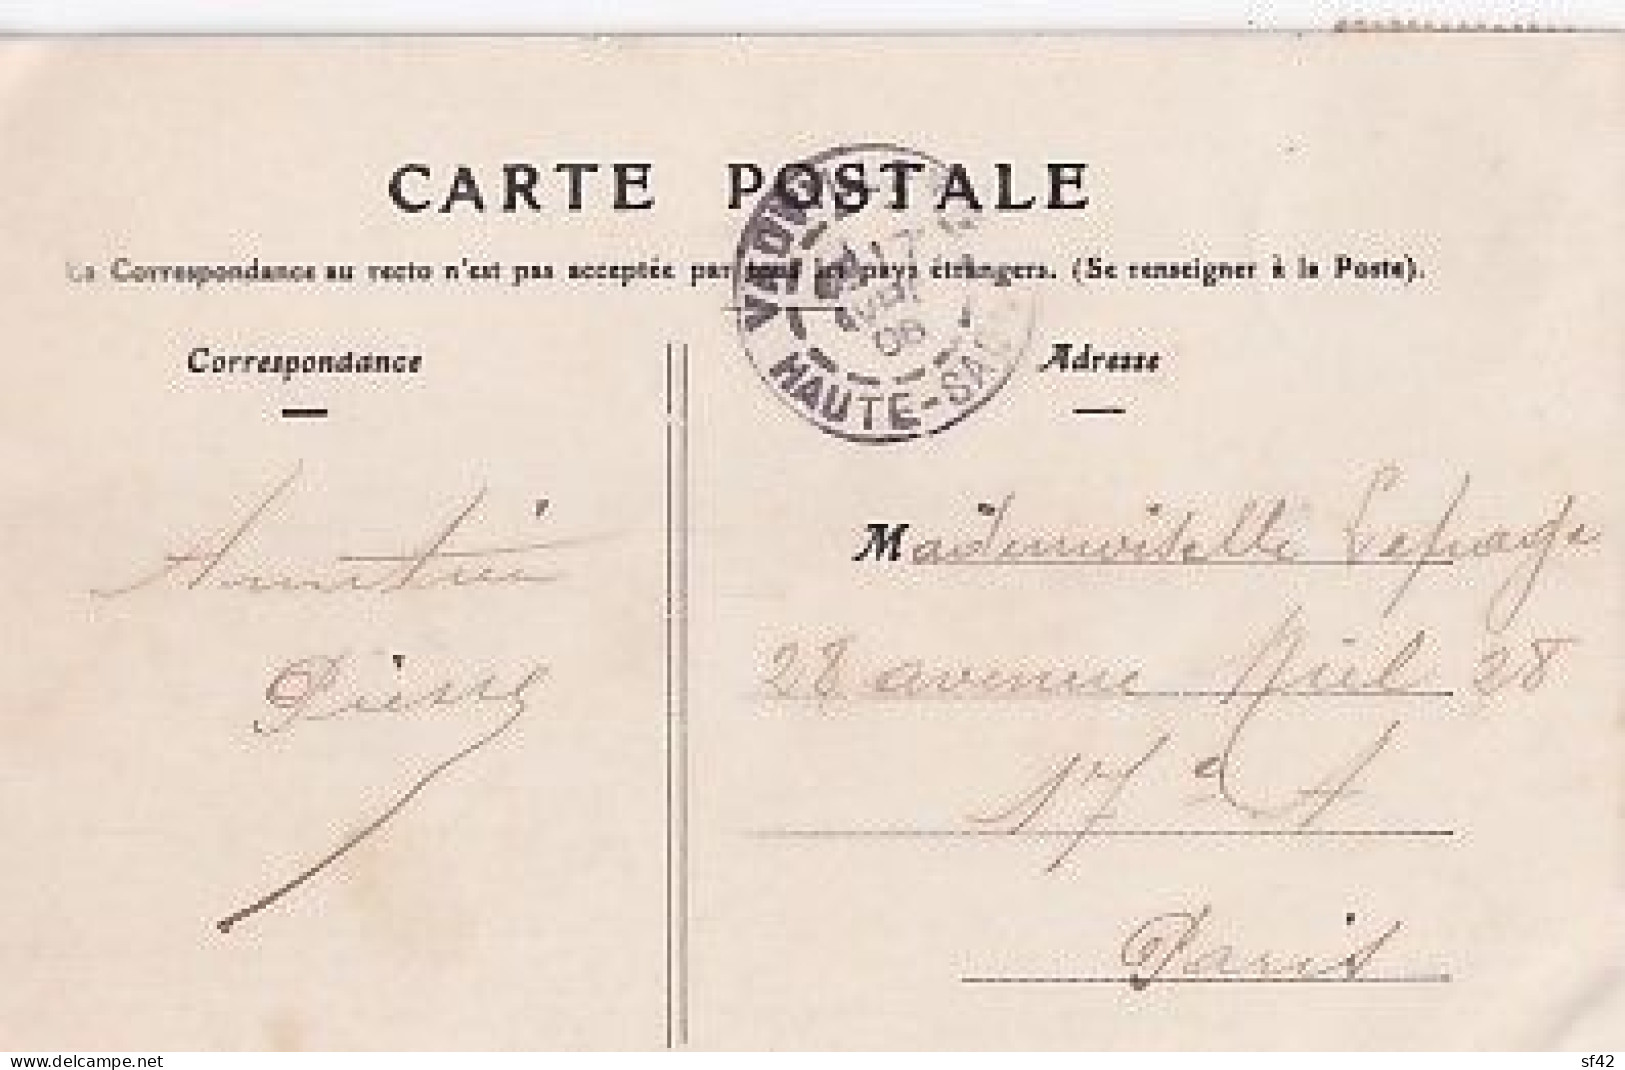 CARTE POSTALE
La Correspondance au recto n'est pas acceptée par tous les pays étrangers. (Se renseigner à la Poste).
Correspondance
Adresse
HAUTE-SAÔ
06
Amitié
Pierre
Mademoiselle Lepage
28 avenue Niel 28
17e A
Paris
www.delcampe.net
sf42